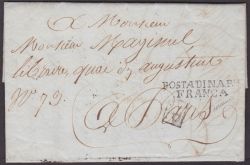 a Monsieur
Monsieur Magimel
libraire, quai des augustins
N° 79.
POSTADINAPI
FRANCA
a Paris